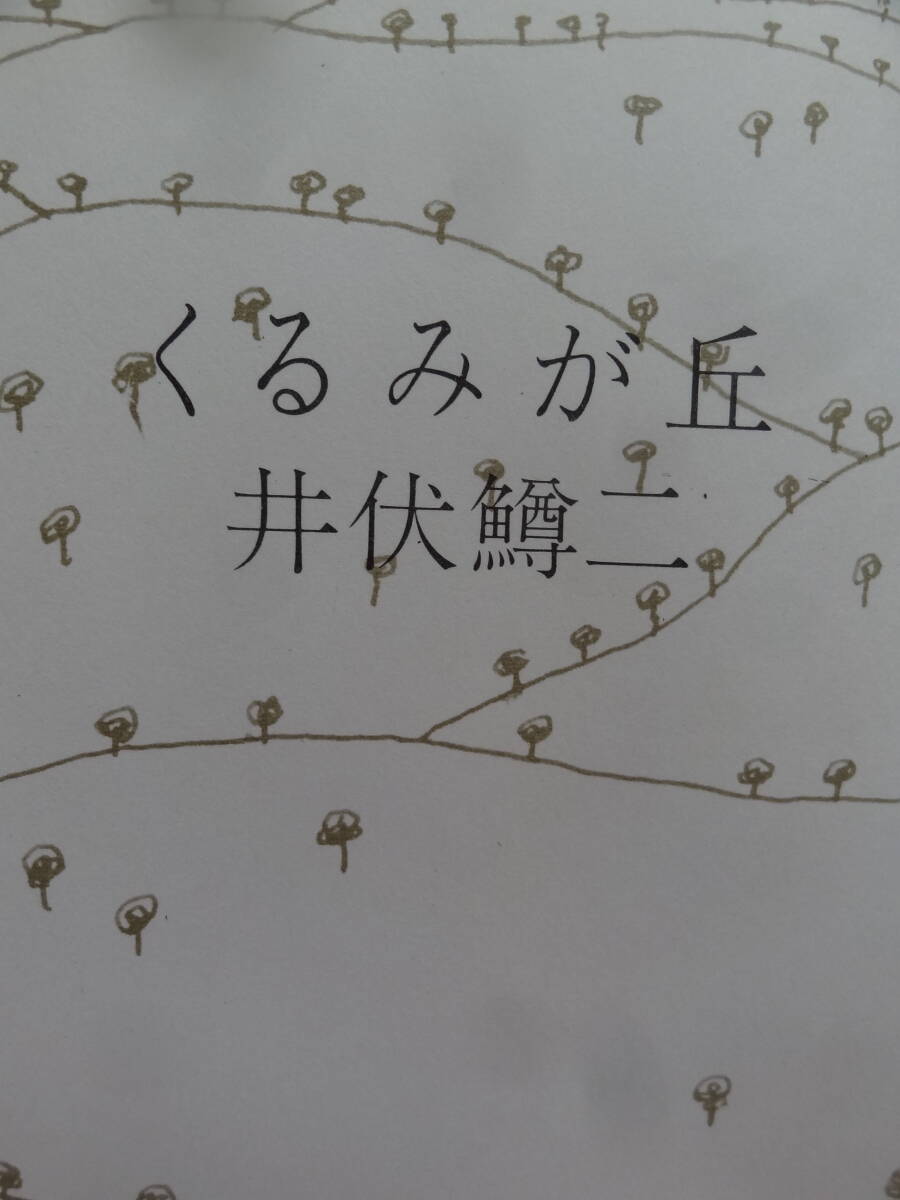 くるみが丘
井伏鱒二